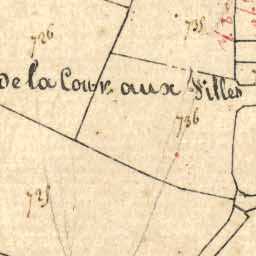 735
726
De la Cour aux Villes
736
725